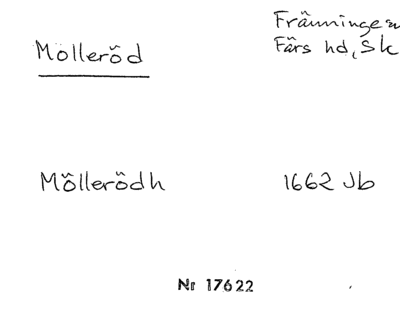 Mölleröd
Fränninge sn
Färs hd, Sk
Möllerödh
1662 Jb
Nr 17622